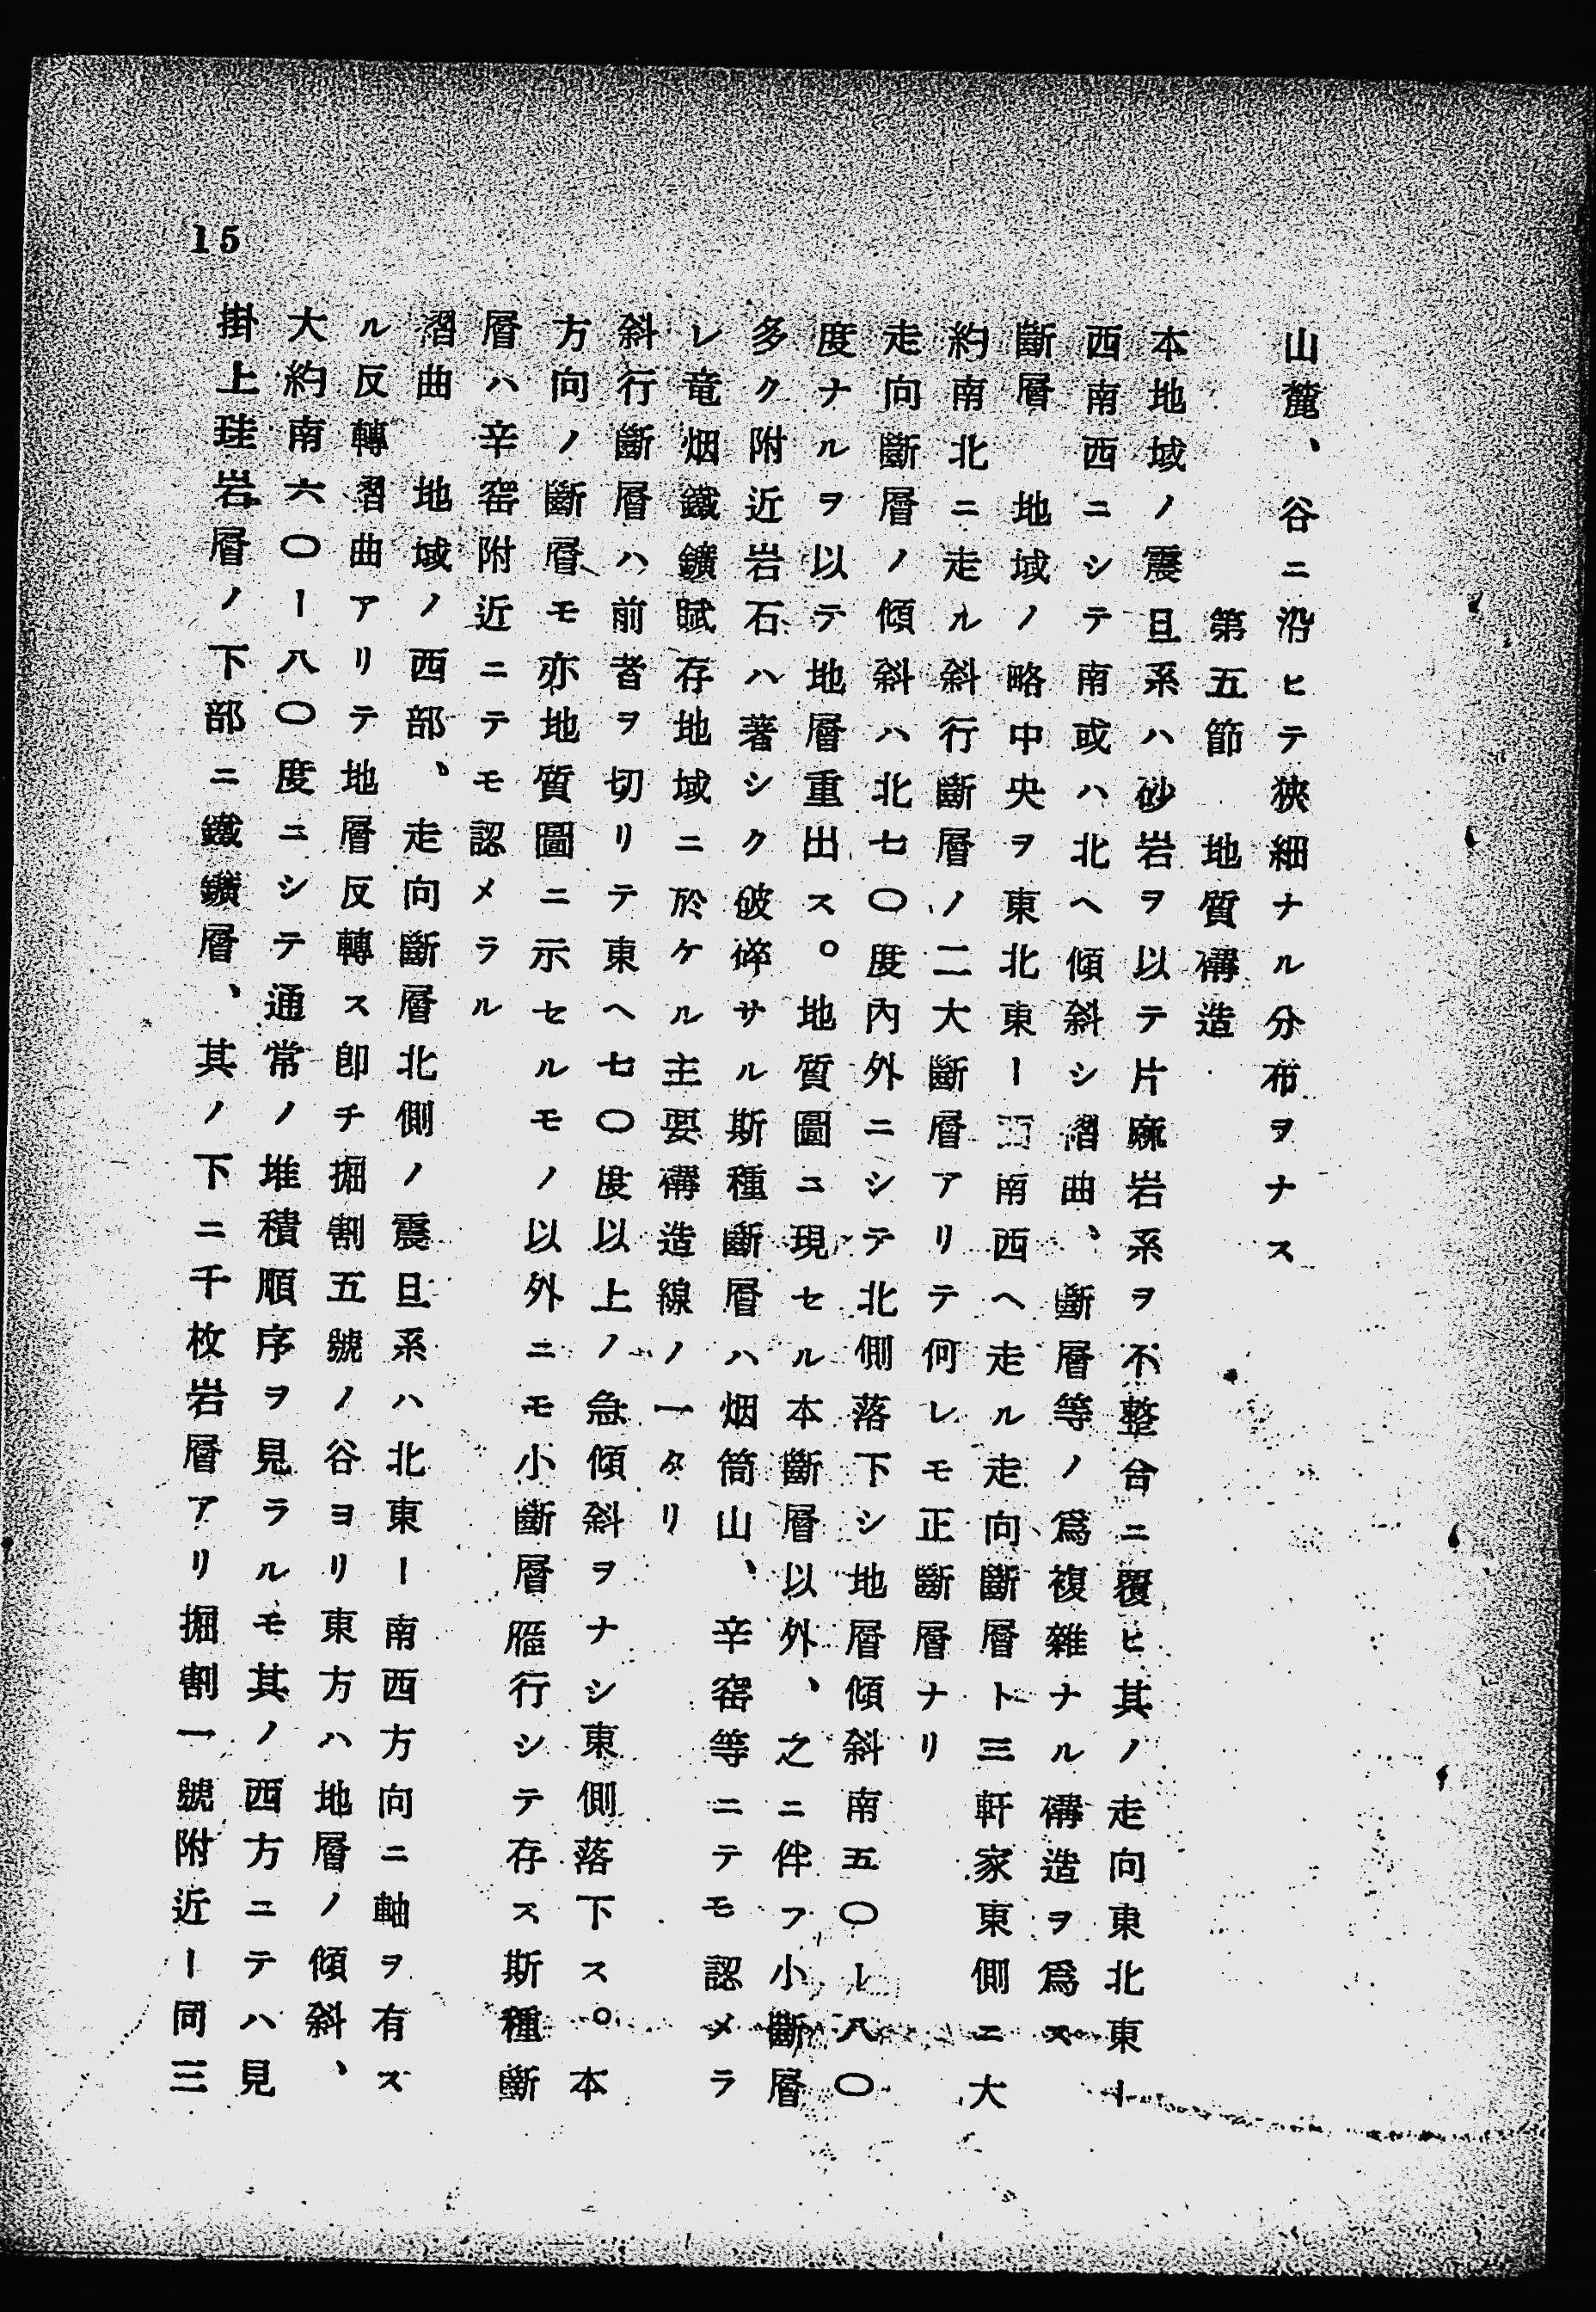 山麓、谷ニ沿ヒテ狹細ナル分布ヲナス
第五節　地質構造
本地域ノ震旦系ハ砂岩ヲ以テ片麻岩系ヲ不整合ニ覆ヒ其ノ走向東北東ー
西南西ニシテ南或ハ北ヘ傾斜シ褶曲、斷層等ノ爲複雜ナル構造ヲ爲ス
斷層　地域ノ略中央ヲ東北東ー西南西ヘ走ル走向斷層ト三軒家東側ニ大
約南北ニ走ル斜行斷層ノ二大斷層アリテ何レモ正斷層ナリ
走向斷層ノ傾斜ハ北七〇度內外ニシテ北側落下シ地層傾斜南五〇ー八〇
度ナルヲ以テ地層重出ス。地質圖ニ現セル本斷層以外、之ニ伴フ小斷層
多ク附近岩石ハ著シク破碎サル斯種斷層ハ烟筒山、辛窑等ニテモ認メラ
レ竜烟鐵鑛賦存地域ニ於ケル主要構造線ノ一タリ
斜行斷層ハ前者ヲ切リテ東ヘ七〇度以上ノ急傾斜ヲナシ東側落下ス。本
方向ノ斷層モ亦地質圖ニ示セルモノ以外ニモ小斷層雁行シテ存ス斯種斷
層ハ辛窑附近ニテモ認メラル
褶曲　地域ノ西部、走向斷層北側ノ震旦系ハ北東ー南西方向ニ軸ヲ有ス
ル反轉褶曲アリテ地層反轉ス卽チ掘割五號ノ谷ヨリ東方ハ地層ノ傾斜、
大約南六〇ー八〇度ニシテ通常ノ堆積順序ヲ見ラルモ其ノ西方ニテハ見
掛上珪岩層ノ下部ニ鐵鑛層、其ノ下ニ千枚岩層アリ掘割一號附近ー同三
15